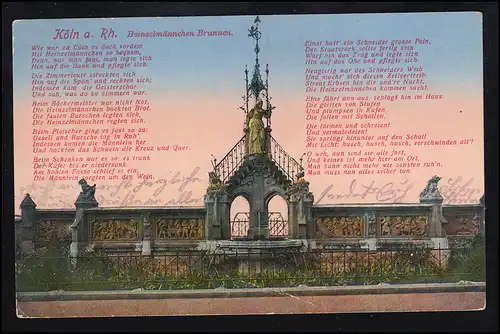 Köln a. Rh. Heinzelmännchen Brunnen.
Wie war zu Cöln es doch vordem
Mit Heinzelmännchen so bequem,
Denn, war man faul, man legte sich
Hin auf die Bank und pflegte sich.
Die Zimmerleute streckten sich
Hin auf die Spän' und reckten sich;
Indessen kam die Geisterschar
Und sah, was da zu zimmern war.
Beim Bäckermeister war nicht Not,
Die Heinzelmännchen backten Brot.
Die faulen Burschen legten sich,
Die Heinzelmännchen regten sich.
Beim Fleischer ging es just so zu:
Gesell und Bursche lag in Ruh'
Indessen kamen die Männlein her
Und hackten das Schwein die Kreuz und Quer.
Beim Schenken war es so: es trank
Der Küfer bis er niedersank
Am hohlen Fasse schlief er ein
Die Männlein sorgten um den Wein.
Einst hatt' ein Schneider grosse Pein,
Der Staatsrock sollte fertig sein
Warf hin das Zeug und legte sich
Hin auf das Ohr und pflegte sich.
Neugierig war des Schneiders Weib
Und macht' sich diesen Zeitvertreib:
Streut Erbsen hin die and're Nacht,
Die Heinzelmännchen kommen sacht.
Eins fährt nun aus, schlägt hin im Haus,
Die gleiten von Stufen
Und plumpsen in Kufen,
Die fallen mit Schallen,
Die lärmen und schreien!
Und vermaledeien!
Sie springt hinunter auf den Schall
Mit Licht: husch, husch, husch, verschwinden all'!
O weh, nun sind sie alle fort,
Und keines ist mehr hier am Ort,
Man kann nicht mehr wie sonsten ruh'n,
Man muss nun alles selber tun.